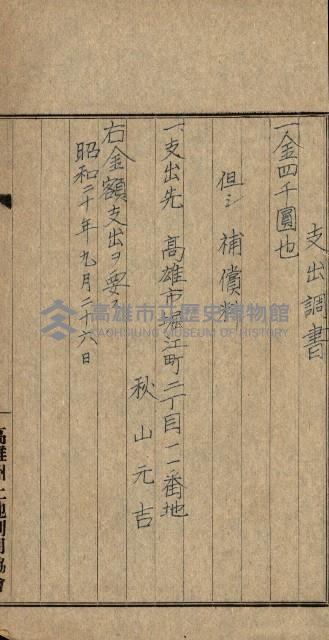 支出調書
一、金四千圓也
但シ 補償料
一、支出先 高雄市堀江町二丁目一一番地
秋山元吉
右金額支出ヲ要ス
昭和二十年九月二十六日
高雄州土地利用協會
高雄市立歷史博物館
KAOHSIUNG MUSEUM OF HISTORY